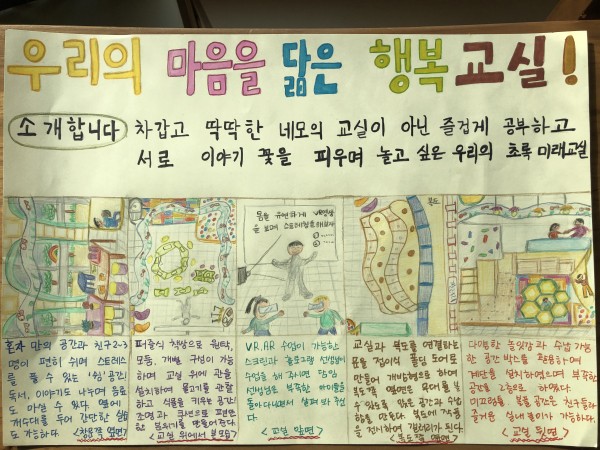 우리의 마음을 닮은 행복교실!
소개합니다 차갑고 딱딱한 네모의 교실이 아닌 즐겁게 공부하고
서로 이야기 꽃을 피우며 놀고 싶은 우리의 초록 미래교실
몸을 유연하게 VR영상
을 보며 스트레칭을 해보자
복도
혼자 만의 공간과 친구 2~3
명이 편히 쉬며 스트레스
를 풀 수 있는 '쉼' 공간!
독서, 이야기도 나누며 음료
도 마실 수 있다. 옆에
개수대를 두어 간단한 실험
도 가능하다. <창문쪽 옆면>
퍼즐식 책상으로 원탁,
모둠, 개별 구성이 가능
하며 교실 위에 관을
설치하여 물고기를 관찰
하고 식물을 키우는 공간!
조명과 쿠션으로 편안
한 분위기를 만들어준다.
<교실 위에서 본 모습>
V.R, AR 수업이 가능한
스크린과 홀로그램 선생님이
수업을 해 주시면 담임
선생님은 부족한 아이들을
돌아다니면서 살펴 봐 주신
다.
<교실 앞면>
교실과 복도를 연결하는
문을 접이식 폴딩 도어로
만들어 개방형으로 하여
복도쪽 옆면은
있도록 많은 공간과 수업
전시하여 갤러리가 된다.
<복도쪽 옆면>
다양한 놀잇감과 수납 가능
한 공간 박스를 활용하며
계단을 설치하였으며 부족한
공간을 2층으로 하였다.
미끄럼틀, 볼풀 공간은 친구들과
즐거운 실내 놀이가 가능하다.
<교실 뒷면>